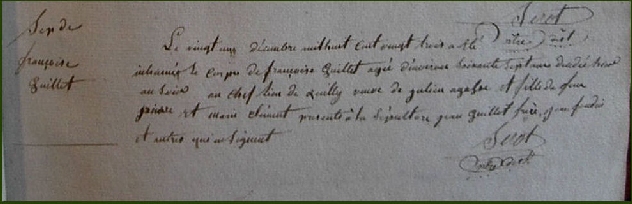 Serot
Sep de
françoise
Quillet
Le vingt un décembre mil huit cent vingt trois a été
inhumée le corps de françoise Quillet agée d'environ soixante sept ans décédée hier
au soir au chef lieu de Quilly veuve de julien et fille de feu
pierre et marie clément présents à la sépulture jean Quillet frère, jean
et autres qui ne signent
Serot